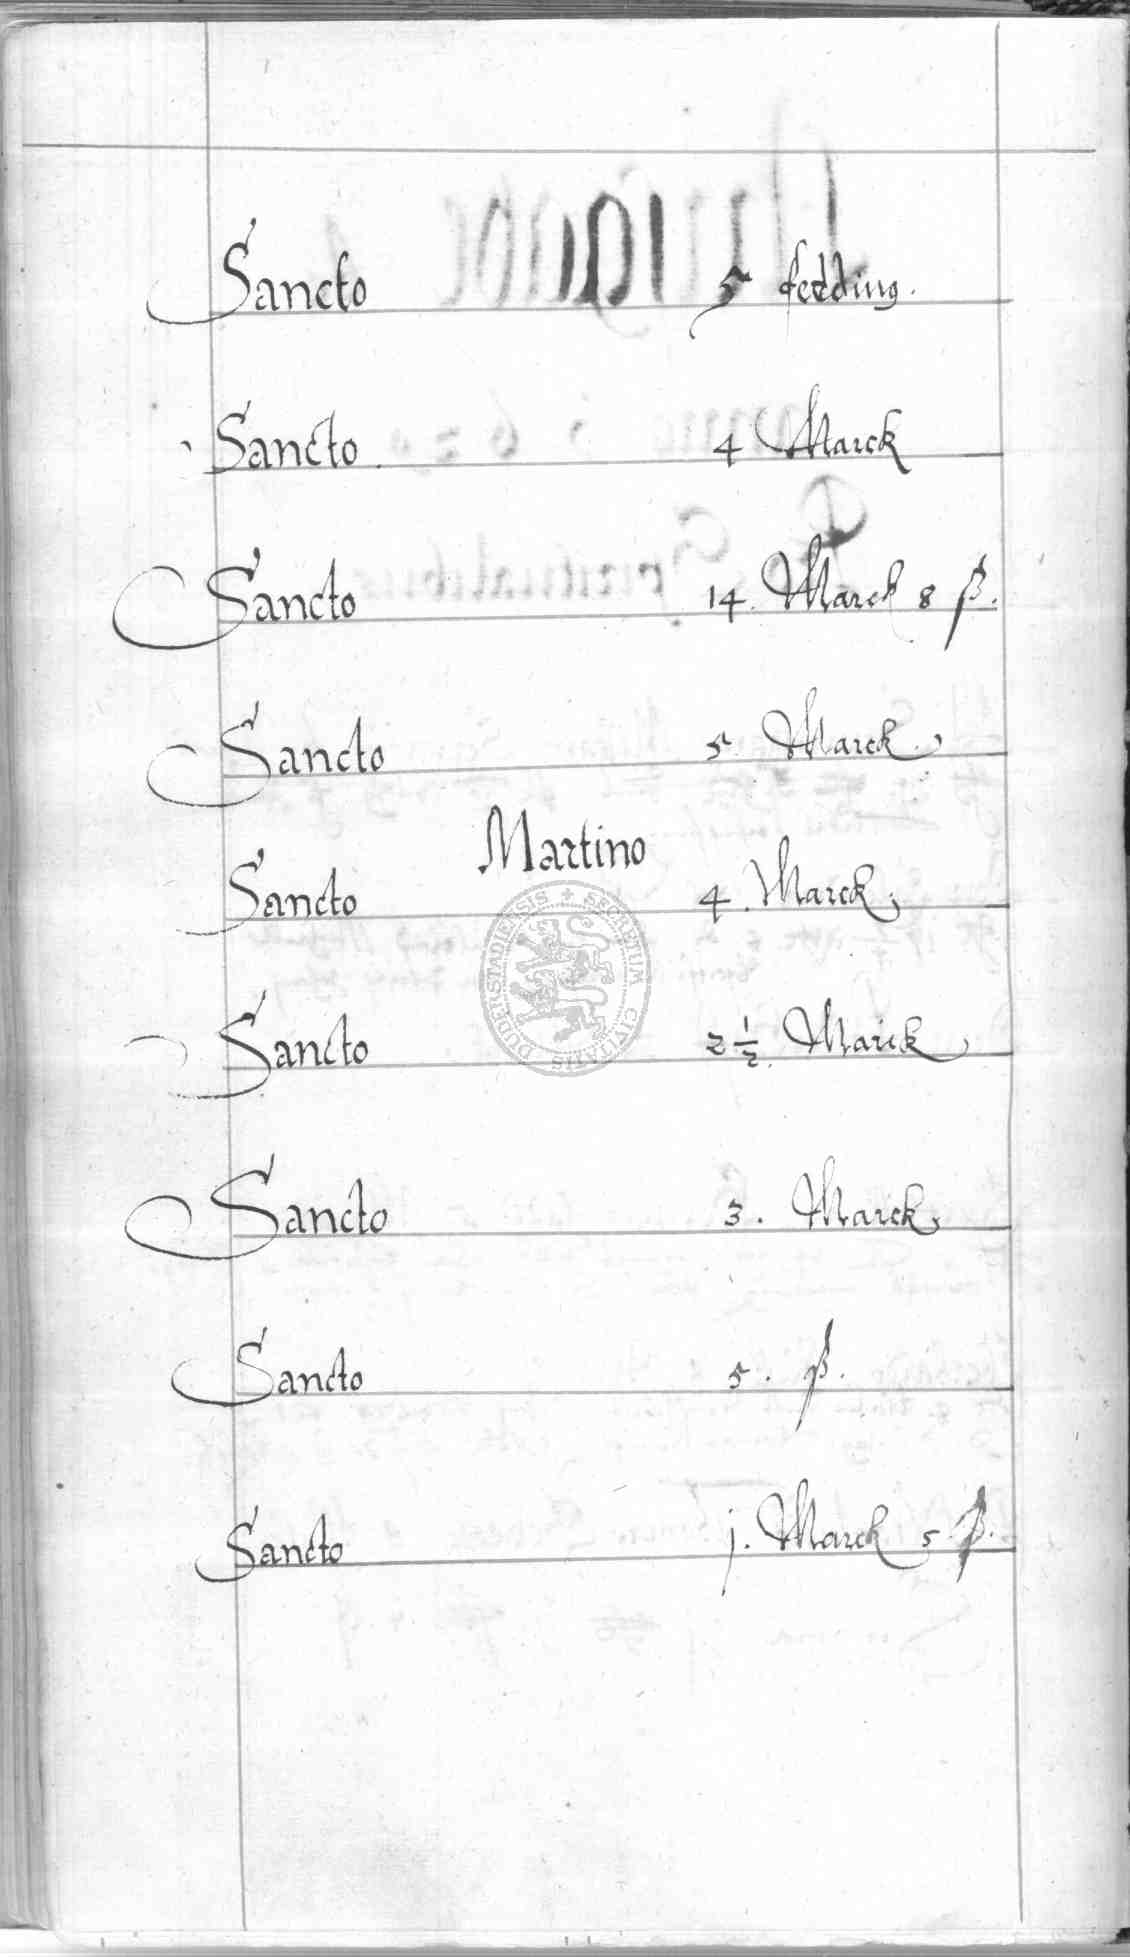 Sancto 5 ferding.
Sancto 4 Marck
Sancto 14. Marck 8 ß.
Sancto 5. Marck.
Martino
Sancto 4. Marck.
Sancto 2 1/2 Marck
Sancto 3. Marck.
Sancto 5. ß.
Sancto j. Marck 5 ß.
SECRETUM CIVITATIS DUDERSTADIENSIS